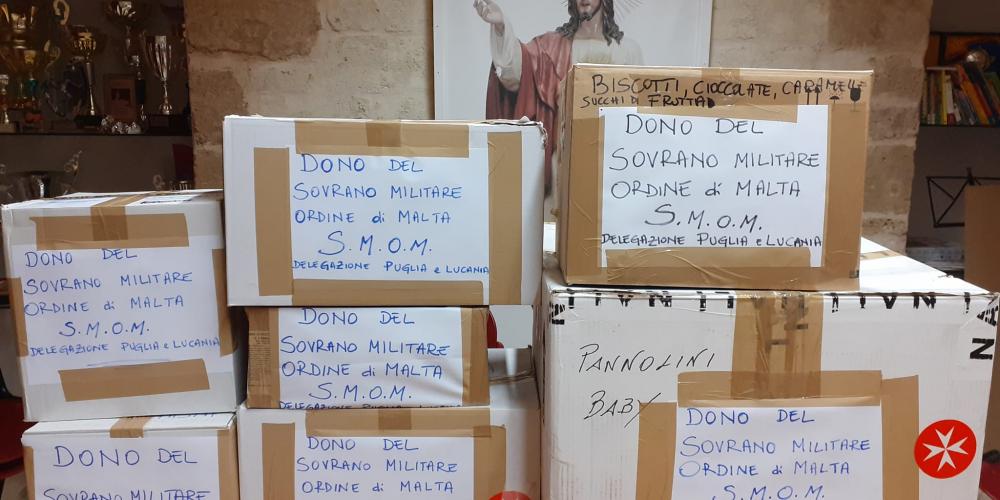 BISCOTTI, CIOCCOLATE, CARAMELLE
SUCCHI DI FRUTTA
DONO DEL
SOVRANO MILITARE
ORDINE di MALTA
S.M.O.M.
DELEGAZIONE PUGLIA e LUCANIA
DONO DEL
SOVRANO MILITARE
ORDINE di MALTA
S.M.O.M.
DELEGAZIONE PUGLIA e LUCANIA
DONO DEL
SOVRANO MILITARE
ORDINE di MALTA
S.M.O.M.
DELEGAZIONE PUGLIA e LUCANIA
DONO DEL
SOVRANO MILITARE
ORDINE di MALTA
S.M.O.M.
DELEGAZIONE PUGLIA e LUCANIA
PANNOLINI
BABY
DONO DEL
SOVRANO MILITARE
ORDINE di MALTA
S.M.O.M.
DONO DEL
SOVRANO MILITARE
ORDINE di MALTA
DONO DEL
SOVRANO MILITARE